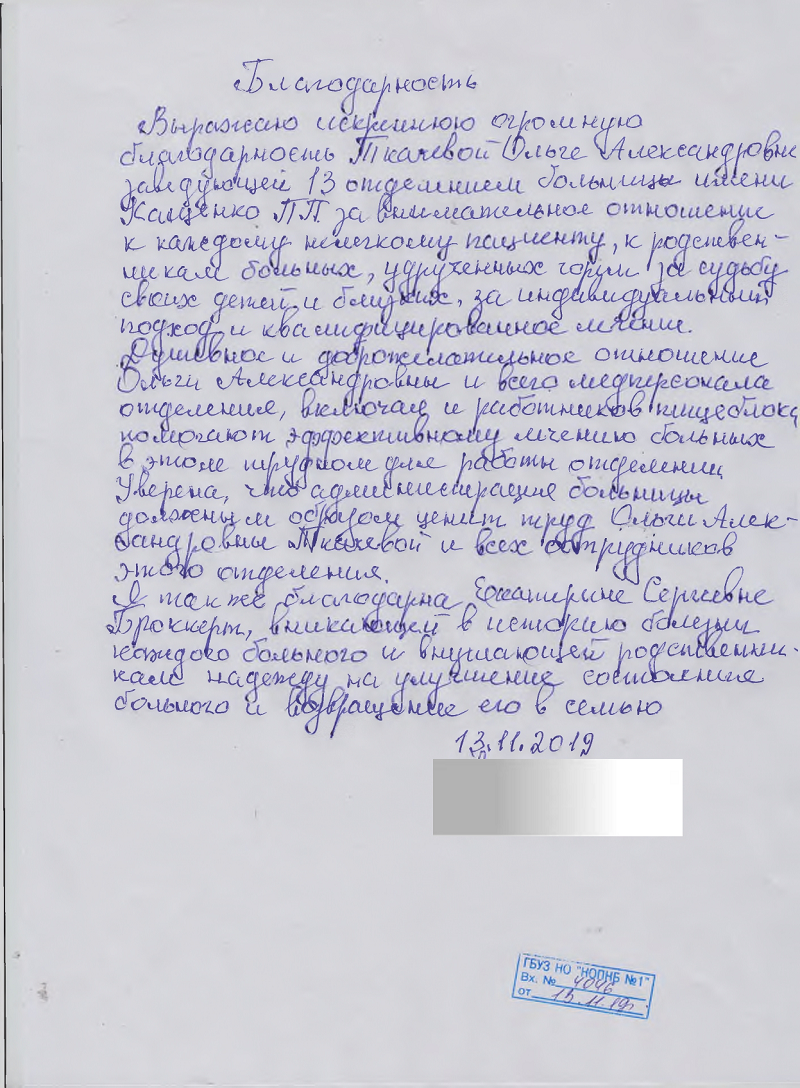 Благодарность
Выражаю искреннюю огромную
благодарность Ткачевой Ольге Александровне
заведующей 13 отделением больницы имени
Кащенко ПП за внимательное отношение
к каждому нелегкому пациенту, к родствен-
никам больных, удрученных горем за судьбу
своих детей и близких, за индивидуальный
подход и квалифицированное лечение.
Душевное и доброжелательное отношение
Ольги Александровны и всего медперсонала
отделения, включая и работников пищеблока
помогают эффективному лечению больных
в этом трудном для работы отделении
Уверена, что администрация больницы
должным образом ценит труд Ольги Алек-
сандровны Ткачевой и всех сотрудников
этого отделения.
Я также благодарна Екатерине Сергеевне
Броккерт, вникающей в историю болезни
каждого больного и внушающей родственни-
кам надежду на улучшение состояния
больного и возвращение его в семью
13.11.2019
ГБУЗ НО "НОПНБ №1"
Вх. № 4046
от 13.11.19г